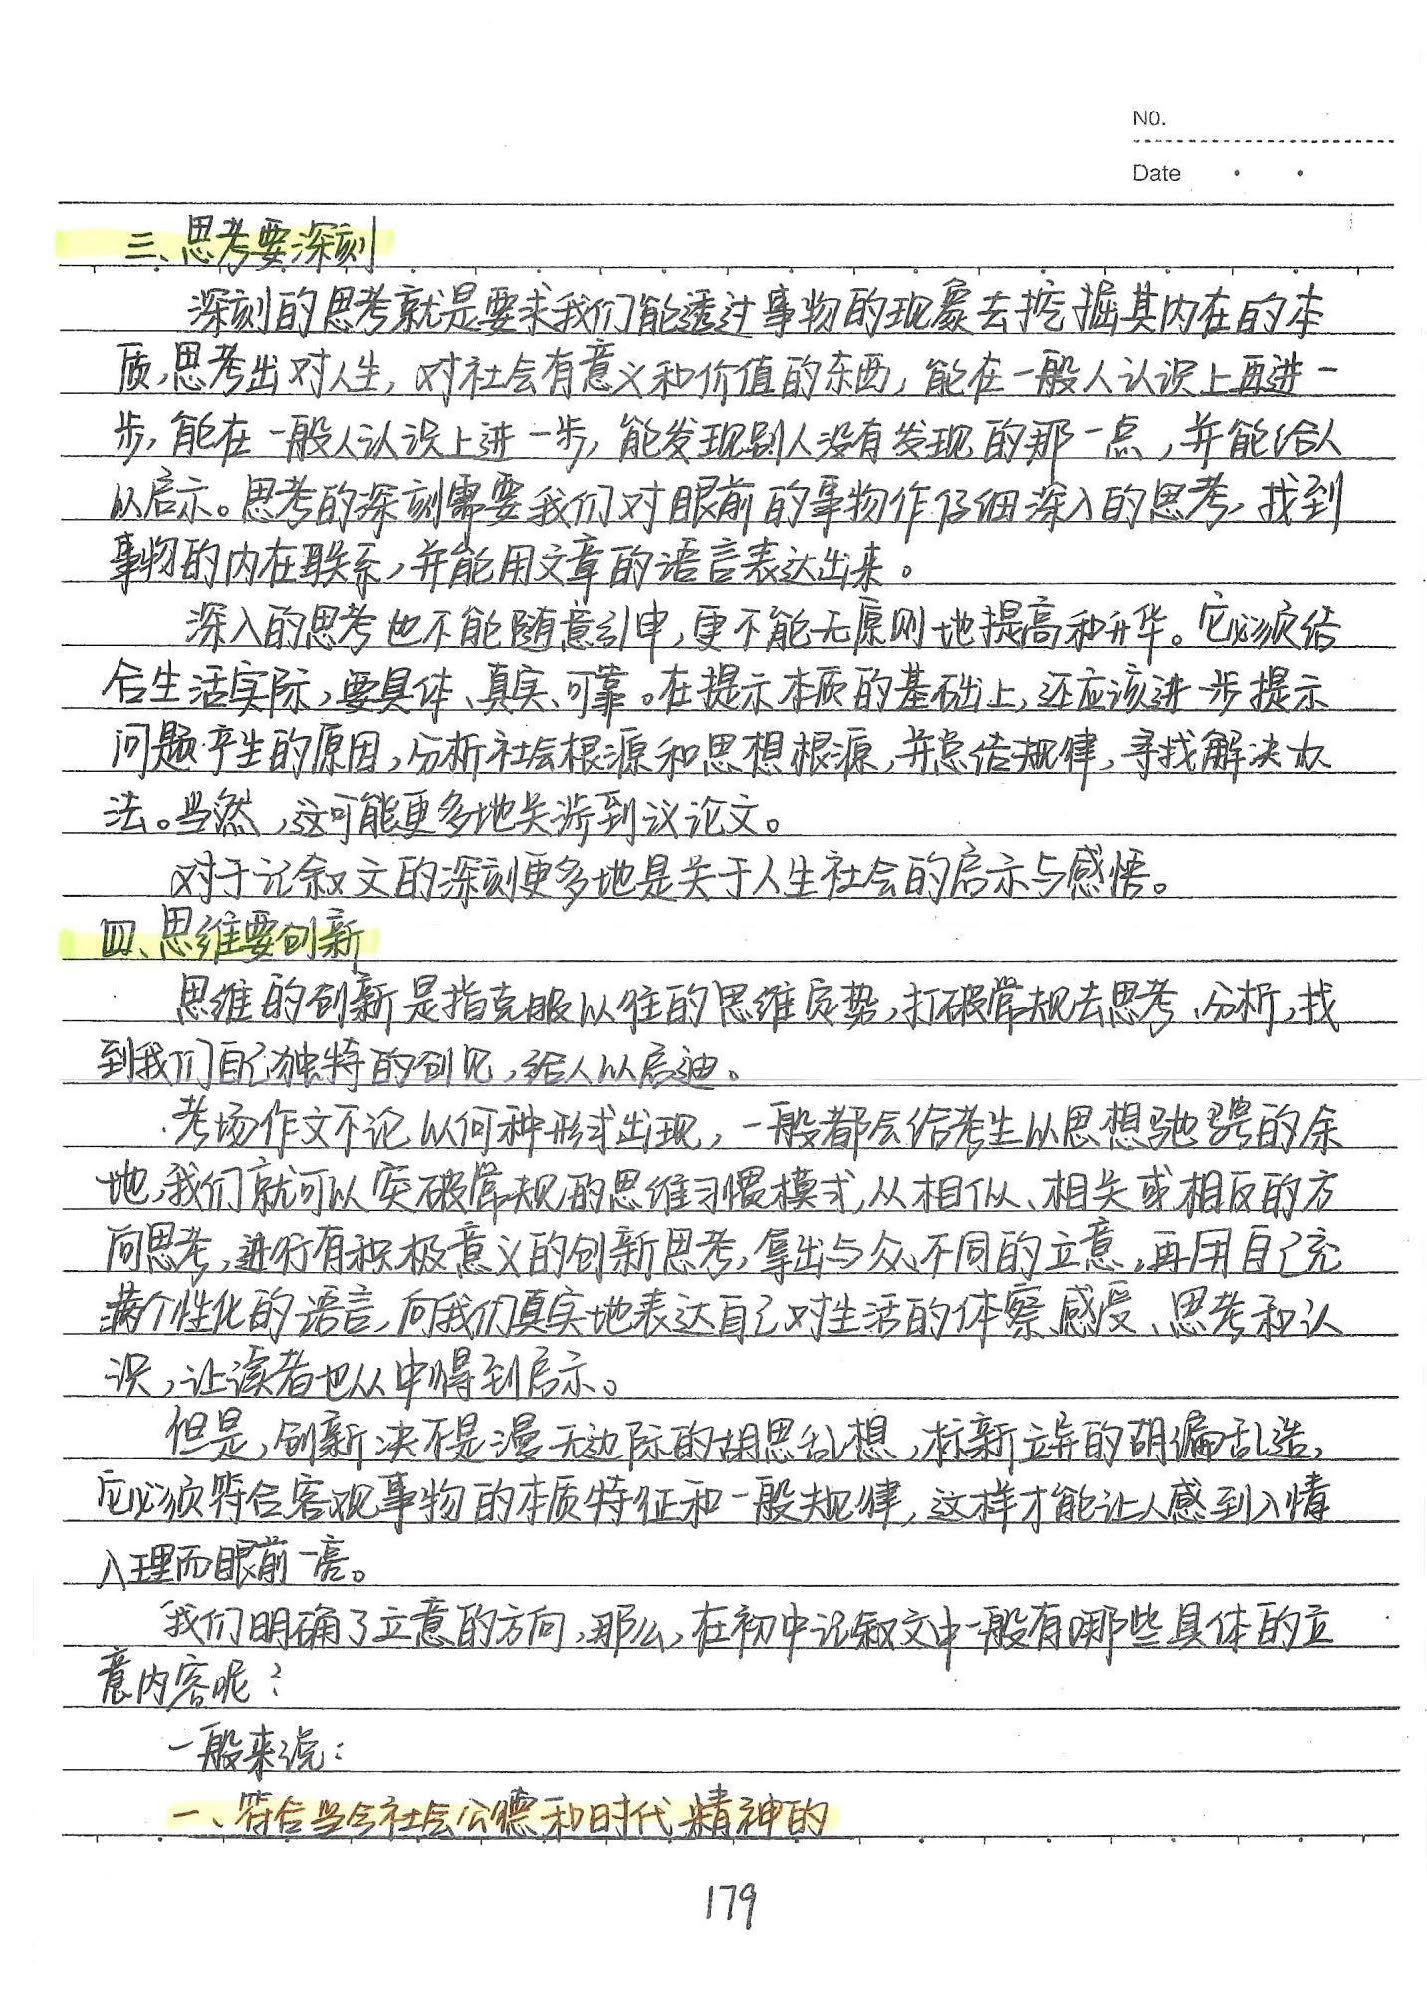 NO.
Date
三、思考要深刻
深刻的思考就是要求我们能透过事物的现象去挖掘其内在的本
质,思考出对人生,对社会有意义和价值的东西,能在一般人认识上再进一
步,能在一般人认识上进一步,能发现别人没有发现的那一点,并能给人
以启示。思考的深刻需要我们对眼前的事物作仔细深入的思考,找到
事物的内在联系,并能用文章的语言表达出来。
深入的思考也不能随意引申,更不能无原则地提高和升华。它必须结
合生活实际,要具体、真实、可靠。在提示本质的基础上,还应该进一步提示
问题产生的原因,分析社会根源和思想根源,并总结规律,寻找解决办
法。当然,这可能更多地关涉到议论文。
对于记叙文的深刻更多地是关于人生社会的启示与感悟。
四、思维要创新
思维的创新是指克服以往的思维定势,打破常规去思考、分析,找
到我们自己独特的创见,给人以启迪。
考场作文不论以何种形式出现,一般都会给考生以思想驰骋的余
地,我们就可以突破常规的思维习惯模式,从相似、相关或相反的方
向思考,进行有积极意义的创新思考,拿出与众不同的立意,再用自己充
满个性化的语言,向我们真实地表达自己对生活的体察、感受、思考和认
识,让读者也从中得到启示。
但是,创新决不是漫无边际的胡思乱想,标新立异的胡编乱造,
它必须符合客观事物的本质特征和一般规律,这样才能让人感到入情
入理而眼前一亮。
我们明确了立意的方向,那么,在初中记叙文中一般有哪些具体的立
意内容呢?
一般来说:
一、符合当今社会公德和时代精神的
179